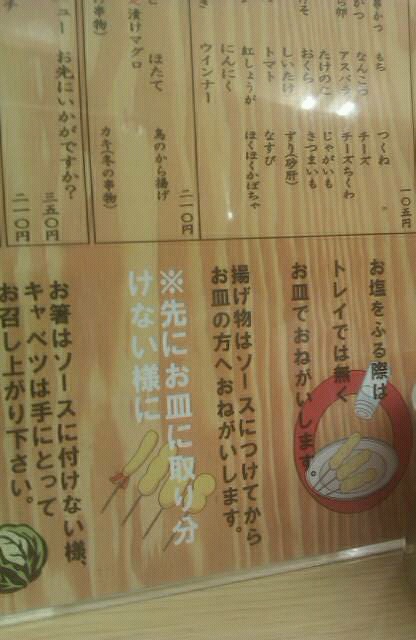 串かつ
もち
つくね
かつ
なんこつ
チーズ
ら卵
アスパラ
チーズちくわ
たけのこ
じゃがいも
おくら
さつまいも
しいたけ
ずり(砂肝)
トマト
なすび
紅しょうが
ほくほくかぼちゃ
にんにく
ウインナー
一〇五円
ほたて
鳥のから揚げ
漬けマグロ
串物)
カキ(冬の串物)
二一〇円
ュー お先にいかがですか?
三五〇円
二一〇円
お塩をふる際は
トレイでは無く
お皿でおねがいします。
揚げ物はソースにつけてから
お皿の方へおねがいします。
※先にお皿に取り分
けない様に
お箸はソースに付けない様、
キャベツは手にとって
お召し上がり下さい。